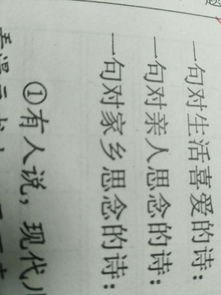 一句对生活喜爱的诗：
一句对亲人思念的诗：
一句对家乡思念的诗：
①有人说，现代